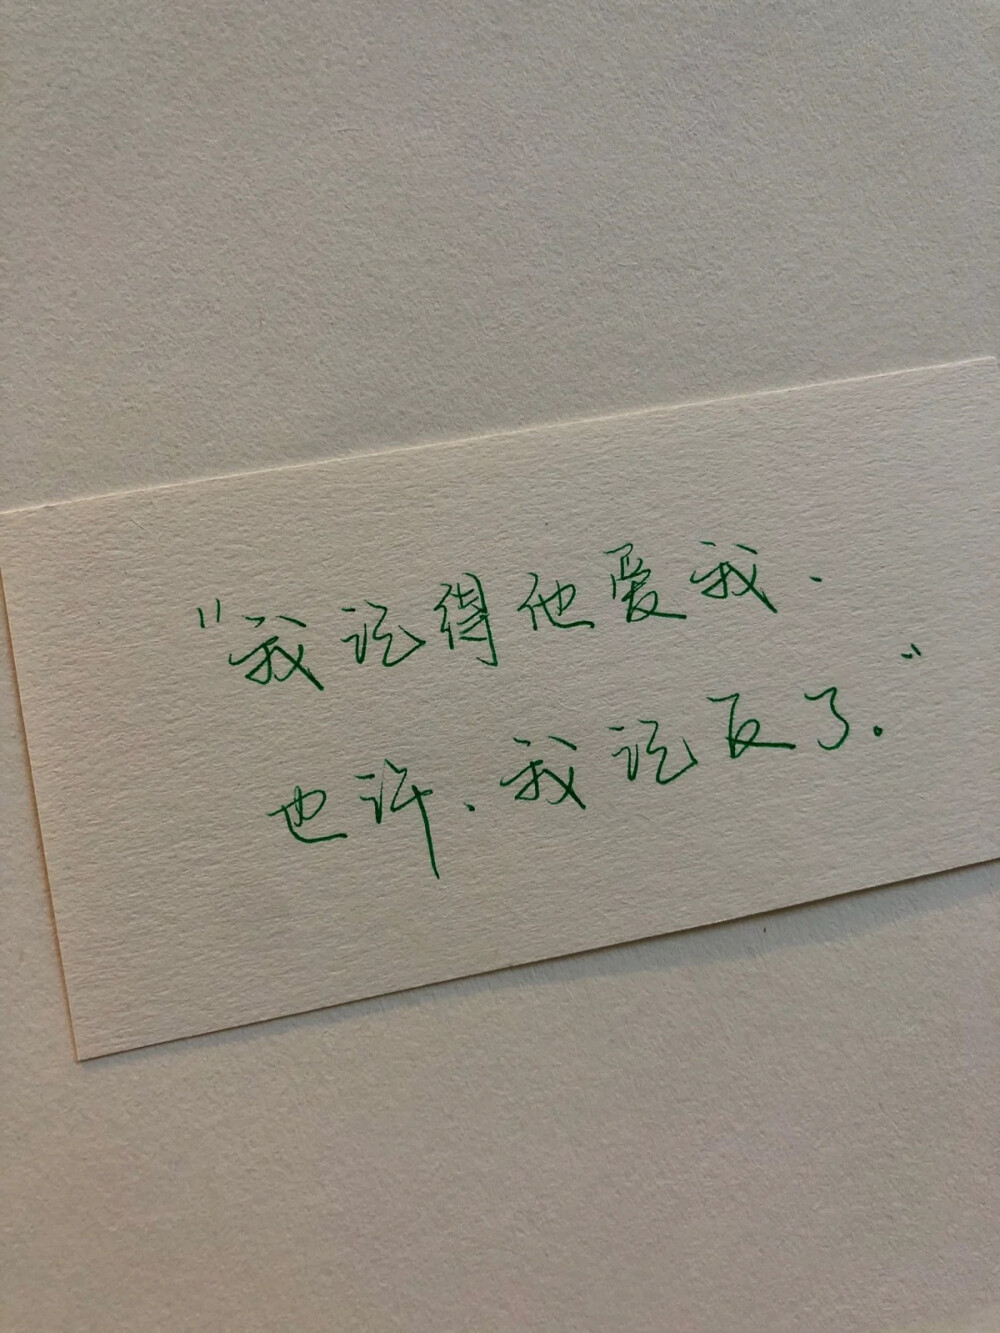 "我记得他爱我.
也许.我记反了."